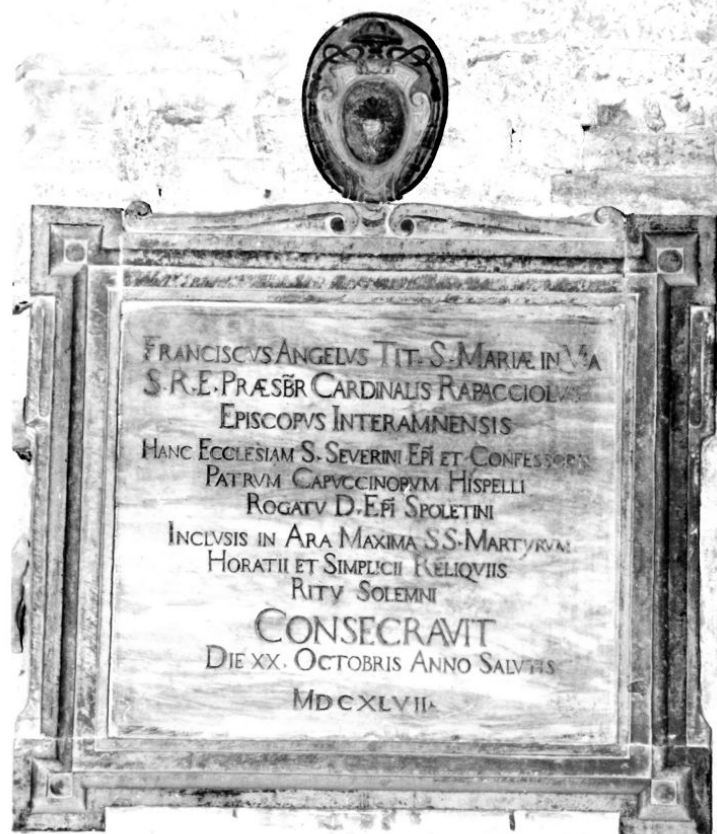 FRANCISCVS ANGELVS TIT. S. MARIÆ IN VIA
S. R. E. PRÆSBR̃ CARDINALIS RAPACCIOLVS
EPISCOPVS INTERAMNENSIS
HANC ECCLESIAM S. SEVERINI EPĨ ET CONFESSORIS
PATRVM CAPVCCINOPVM HISPELLI
ROGATV D. EPĨ SPOLETINI
INCLVSIS IN ARA MAXIMA S S. MARTYRVM
HORATII ET SIMPLICII RELIQVIIS
RITV SOLEMNI
CONSECRAVIT
DIE XX. OCTOBRIS ANNO SALVTIS
MDCXLVII.